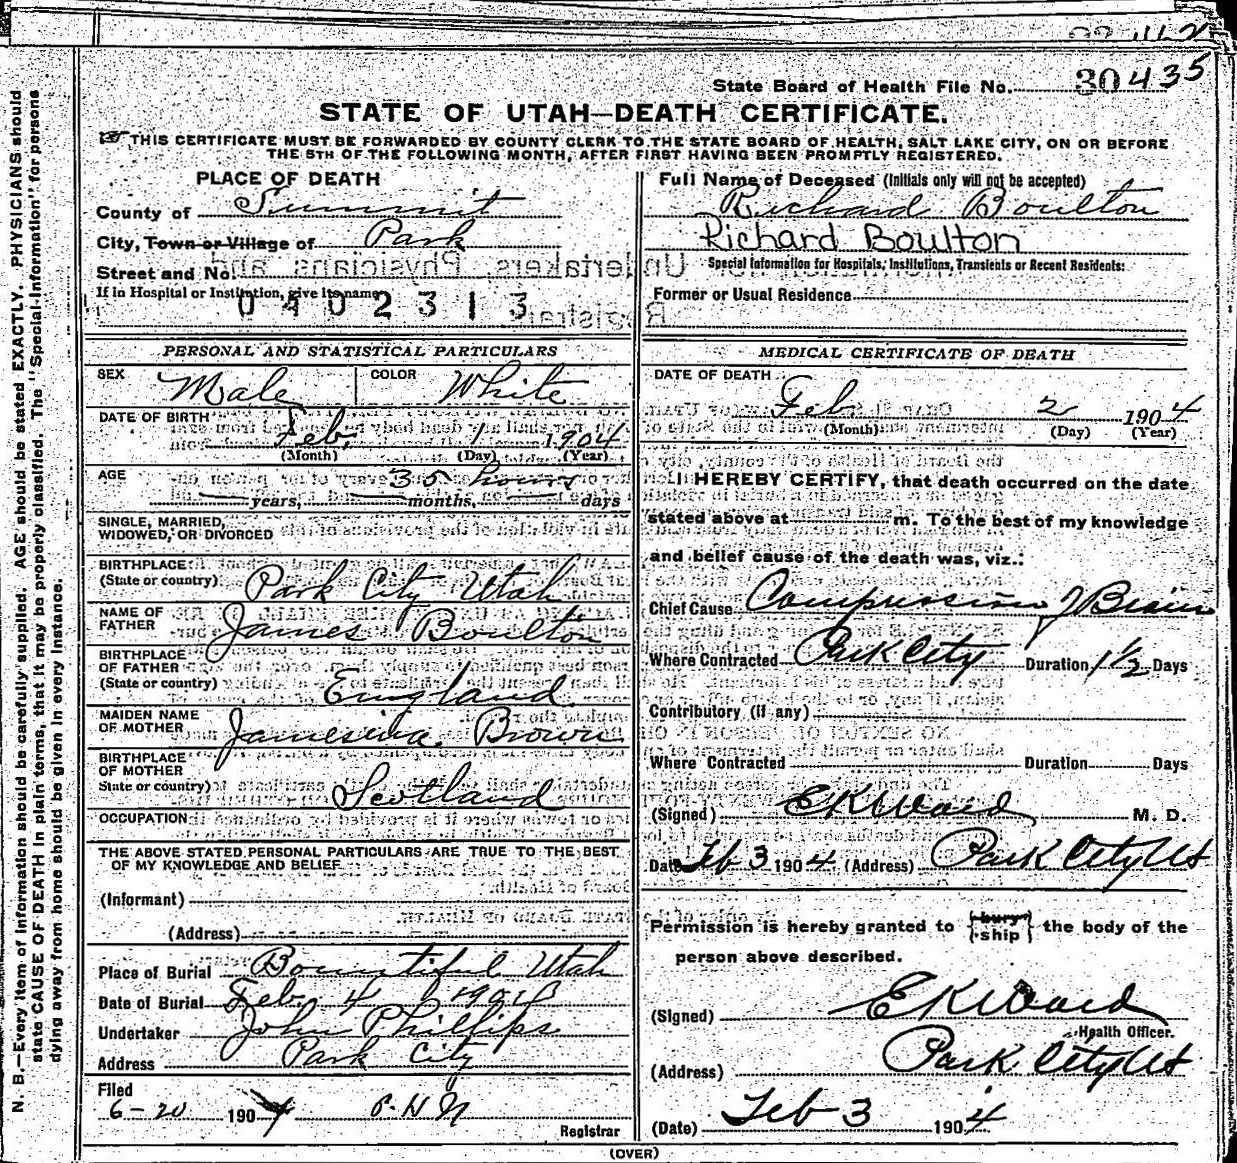 State Board of Health File No. 30435
STATE OF UTAH—DEATH CERTIFICATE.
THIS CERTIFICATE MUST BE FORWARDED BY COUNTY CLERK TO THE STATE BOARD OF HEALTH, SALT LAKE CITY, ON OR BEFORE
THE 5TH OF THE FOLLOWING MONTH, AFTER FIRST HAVING BEEN PROMPTLY REGISTERED.
PLACE OF DEATH
County of Summit
City, Town or Village of Park
Street and No.
If in Hospital or Institution, give its name
0402313
Full Name of Deceased (Initials only will not be accepted)
Richard Boulton
Richard Boulton
Special Information for Hospitals, Institutions, Transients or Recent Residents:
Former or Usual Residence
PERSONAL AND STATISTICAL PARTICULARS
SEX Male COLOR White
DATE OF BIRTH Feb. 1 1904
(Month) (Day) (Year)
AGE 35 hours
years, months, days
SINGLE, MARRIED,
WIDOWED, OR DIVORCED
BIRTHPLACE
(State or country) Park City Utah
NAME OF
FATHER James Boulton
BIRTHPLACE
OF FATHER
(State or country) England
MAIDEN NAME
OF MOTHER Jamesina Brown
BIRTHPLACE
OF MOTHER
State or country) Scotland
OCCUPATION
THE ABOVE STATED PERSONAL PARTICULARS ARE TRUE TO THE BEST
OF MY KNOWLEDGE AND BELIEF
(Informant)
(Address)
Place of Burial Bountiful Utah
Date of Burial Feb. 4 1904
Undertaker John Phillips
Address Park City
Filed
6-20 1904 P.H.N
Registrar
MEDICAL CERTIFICATE OF DEATH
DATE OF DEATH
Feb 2 1904
(Month) (Day) (Year)
I HEREBY CERTIFY, that death occurred on the date
stated above at m. To the best of my knowledge
and belief cause of the death was, viz.:
Chief Cause Compression of Brain
Where Contracted Park City Duration 1 1/2 Days
Contributory (if any)
Where Contracted Duration Days
(Signed) E K Ward M. D.
Date Feb 3 1904 (Address) Park City Ut
Permission is hereby granted to {bury ship} the body of the
person above described.
(Signed) E K Ward
Health Officer.
(Address) Park City Ut
(Date) Feb 3 1904
(OVER)
N. B.—Every item of information should be carefully supplied. AGE should be stated EXACTLY. PHYSICIANS should
state CAUSE OF DEATH in plain terms, that it may be properly classified. The "Special Information" for persons
dying away from home should be given in every instance.